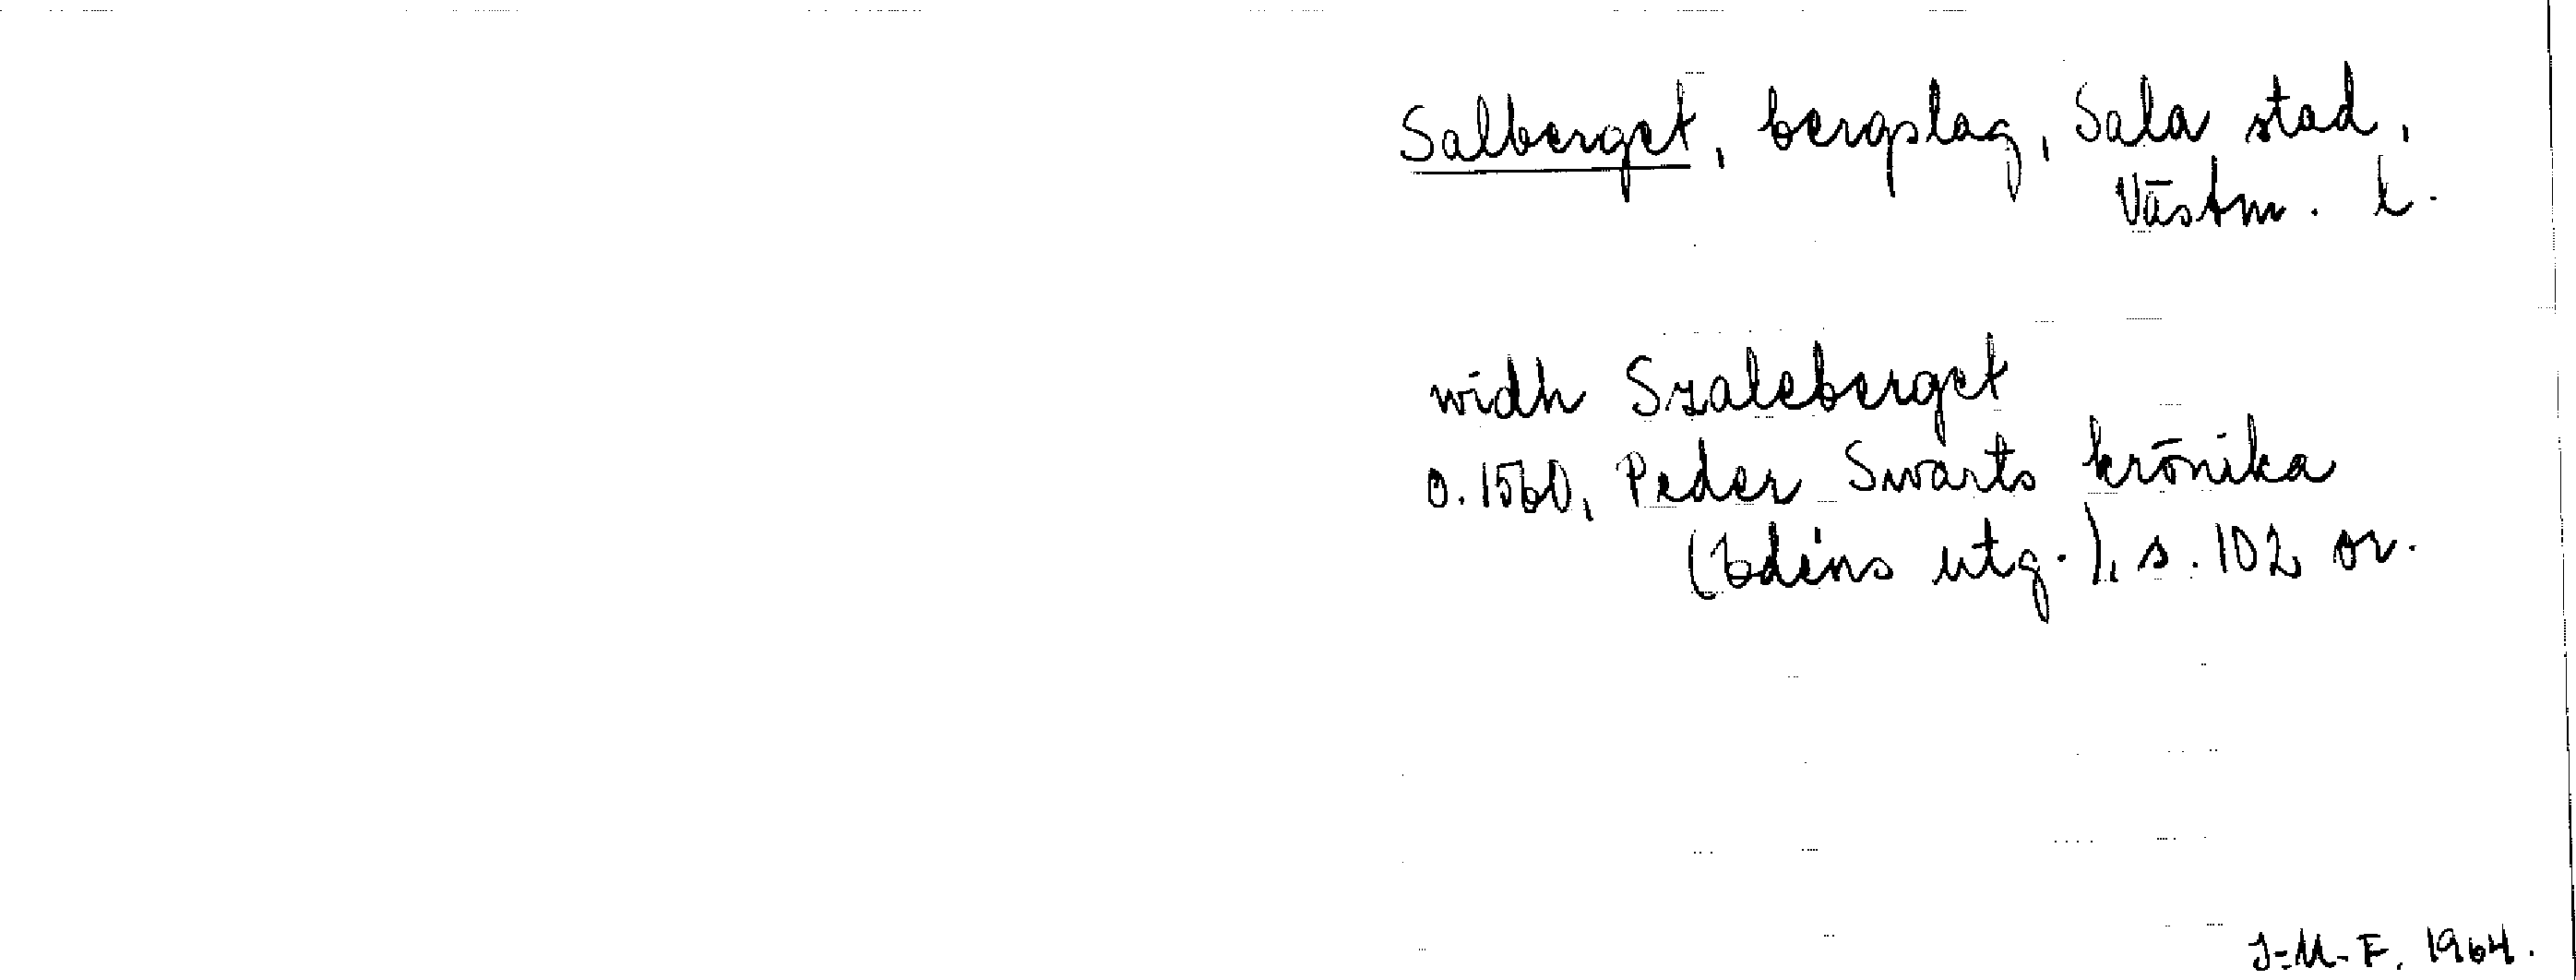 Salberget, bergslag, Sala stad,
Västm. l.
widh Szaleberget
o. 1560, Peder Swarts krönika
(Edéns utg.), s. 102 or.
I-M-F, 1964.